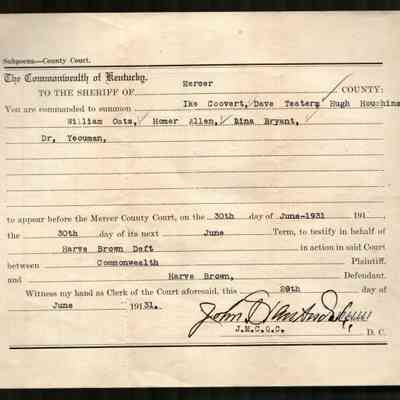 Subpoena—County Court.
The Commonwealth of Kentucky.
TO THE SHERIFF OF Mercer COUNTY:
You are commanded to summon Ike Coovert, Dave Teaters Hugh Houchins
William Oats, Homer Allen, Dina Bryant,
Dr, Yeouman,
to appear before the Mercer County Court, on the 30th day of June-1931 191
the 30th day of its next June Term, to testify in behalf of
Harve Brown Deft in action in said Court
between Commonwealth Plaintiff.
and Harve Brown, Defendant.
Witness my hand as Clerk of the Court aforesaid, this 29th day of
June 19131.
John
J.M.C.C.C. D. C.